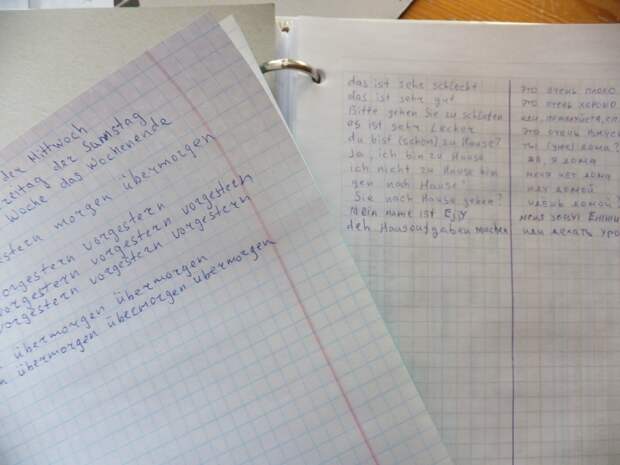 der Mittwoch
reitag der Samstag
Woche das Wochenende
estern morgen übermorgen
vorgestern vorgestern
vorgestern vorgestern vorgestern
vorgestern vorgestern vorgestern
übermorgen übermorgen
n übermorgen übermorgen übermorgen
das ist sehr schlecht
das ist sehr gut
Bitte gehen Sie zu schlafen
es ist sehr Lecker
du bist (schon) zu Hause?
Ja, ich bin zu Hause
ich nicht zu Hause bin
gen nach Hause
Sie nach Hause gehen?
Mein name ist
deh Hausaufgaben machen
это очень плохо
это очень хорошо
это очень вкусн
ты (уже) дома?
да, я дома
меня нет дома
иду домой
идешь домой?
меня зовут
иди делать уро